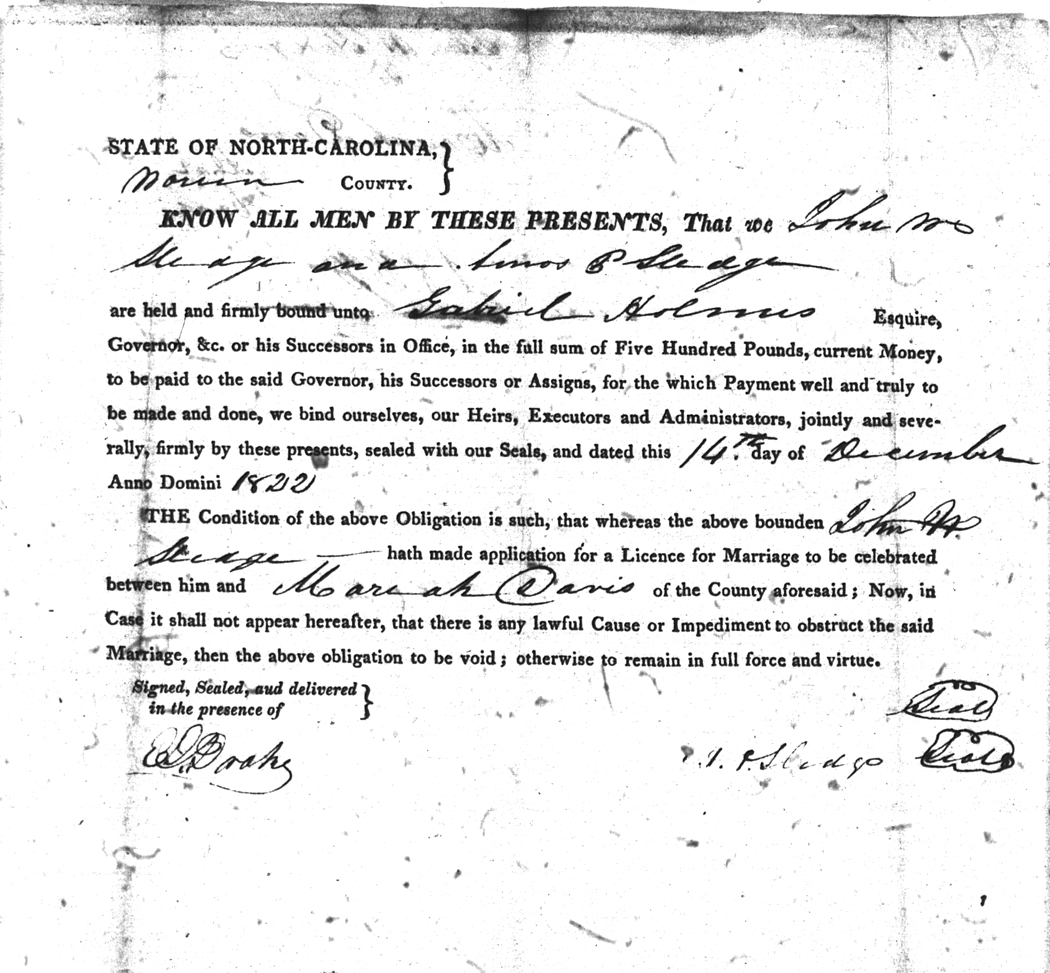 STATE OF NORTH-CAROLINA,
Warren COUNTY.
KNOW ALL MEN BY THESE PRESENTS, That we John W
Sledge and Amos P Sledge
are held and firmly bound unto Gabriel Holmes Esquire,
Governor, &c. or his Successors in Office, in the full sum of Five Hundred Pounds, current Money,
to be paid to the said Governor, his Successors or Assigns, for the which Payment well and truly to
be made and done, we bind ourselves, our Heirs, Executors and Administrators, jointly and seve-
rally, firmly by these presents, sealed with our Seals, and dated this 14.th day of December
Anno Domini 1822
THE Condition of the above Obligation is such, that whereas the above bounden John W.
Sledge hath made application for a Licence for Marriage to be celebrated
between him and Mariah Davis of the County aforesaid; Now, in
Case it shall not appear hereafter, that there is any lawful Cause or Impediment to obstruct the said
Marriage, then the above obligation to be void; otherwise to remain in full force and virtue.
Signed, Sealed, aud delivered
in the presence of
Seal
Drake P. Sledge Seal